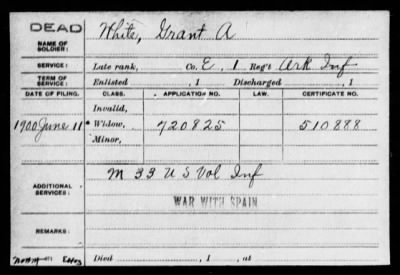 DEAD
NAME OF SOLDIER: White, Grant A
SERVICE: Late rank, Co. E, 1 Reg't Ark Inf
TERM OF SERVICE: Enlisted , 1 Discharged , 1
DATE OF FILING. CLASS. APPLICATION NO. LAW. CERTIFICATE NO.
Invalid,
1900 June 11 Widow, 720825 510888
Minor,
ADDITIONAL SERVICES: M 33 U S Vol Inf
WAR WITH SPAIN
REMARKS:
Died , 1 , at